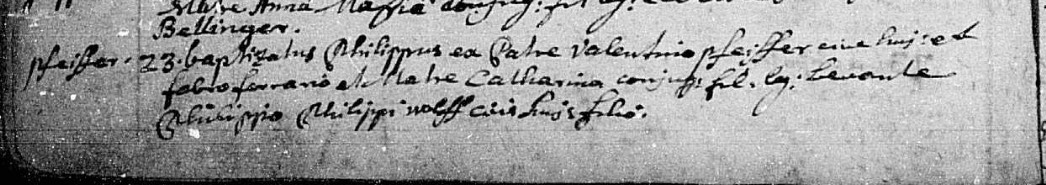 Matre Anna Maria conjug: fil. lg.
Bellinger.
pfeiffer. 23. baptizatus Philippus ex Patre Valentino pfeiffer cive huj: et
fabro ferrario et Matre Catharina conjug: fil. lg. Levante
Philippo Philippi wolff civis hujs filio.